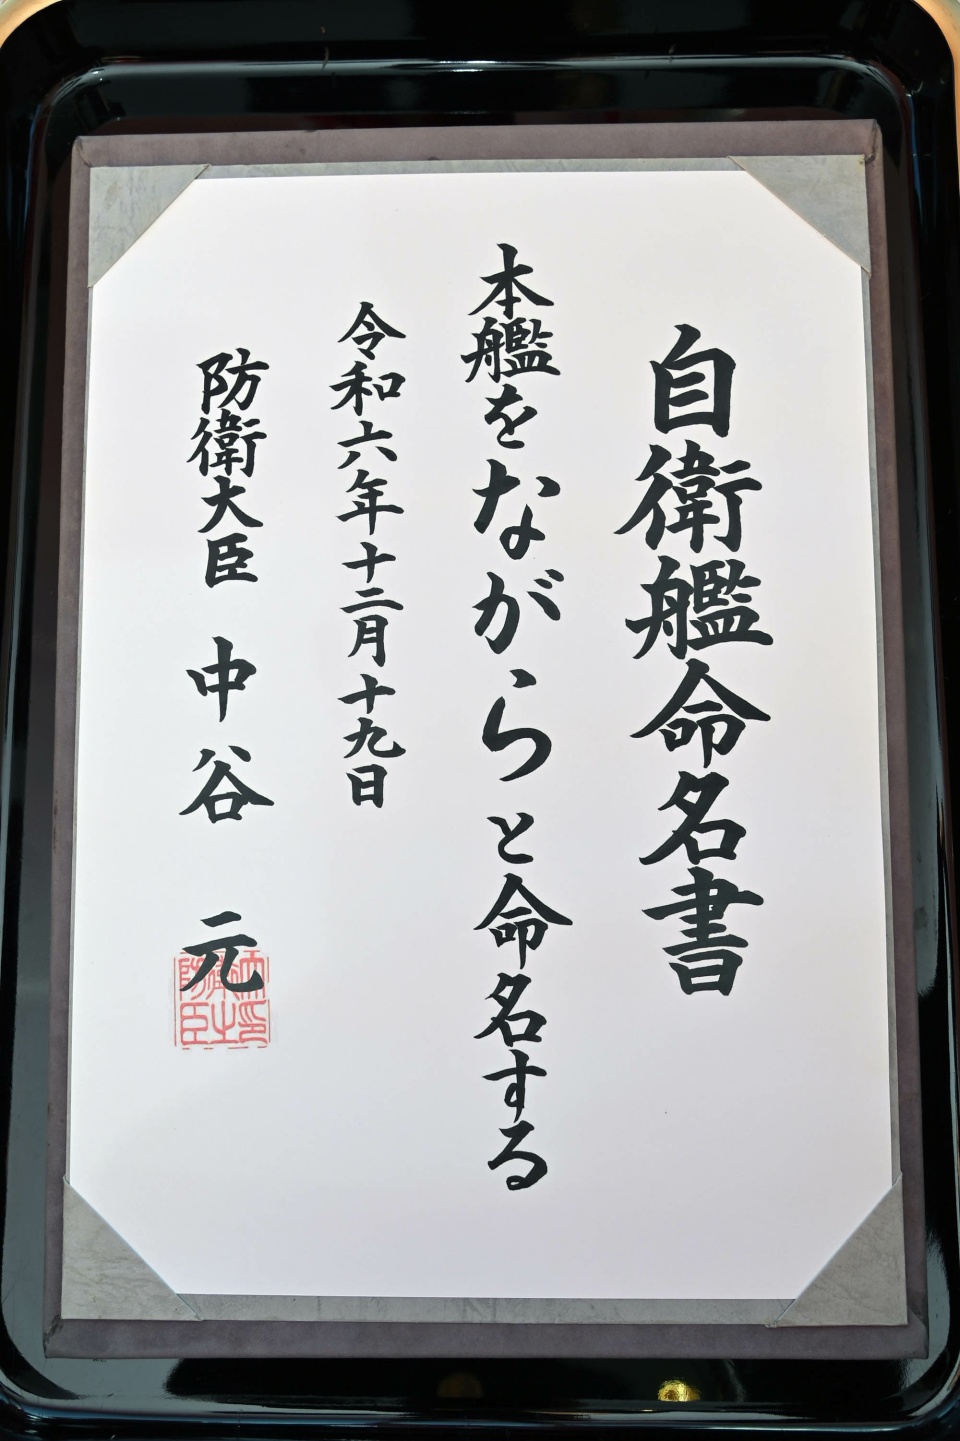 自衛艦命名書
本艦をながらと命名する
令和六年十二月十九日
防衛大臣 中谷 元
防衛大臣之印